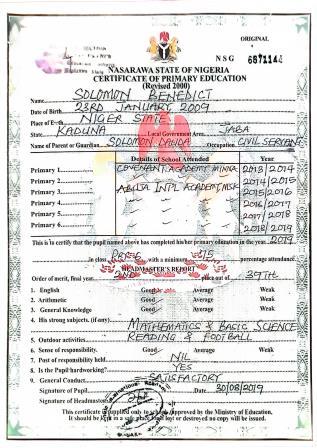 ORIGINAL
NSG 6871144
NASARAWA STATE OF NIGERIA
CERTIFICATE OF PRIMARY EDUCATION
(Revised 2000)
Name SOLOMON BENEDICT
Date of Birth 23RD JANUARY 2009
Place of Birth NIGER STATE
State KADUNA Local Government Area JABA
Name of Parent or Guardian SOLOMON DAUDA Occupation CIVIL SERVANT
Details of School Attended Year
Primary 1 COVENANT ACADEMY MINNA 2013/2014
Primary 2 2014/2015
Primary 3 ABUJA INT'L ACADEMY, MSK 2015/2016
Primary 4 2016/2017
Primary 5 2017/2018
Primary 6 2018/2019
This is to certify that the pupil named above has completed his/her primary education in the year 2019
in class with a minimum percentage attendance.
HEADMASTER'S REPORT
Order of merit, final year place out of 39TH
1. English Good Average Weak
2. Arithmetic Good Average Weak
3. General Knowledge Good Average Weak
4. His strong subjects, (if any) MATHEMATICS & BASIC SCIENCE
5. Outdoor activities READING & FOOTBALL
6. Sense of responsibility. Good Average Weak
7. Post of responsibility held NIL
8. Is the Pupil hardworking? YES
9. General Conduct SATISFACTORY
Signature of Pupil Date 30/08/2019
Signature of Headmaster
This certificate is supplied only to schools approved by the Ministry of Education.
It should be kept in a safe place. If lost or destroyed no copy will be issued.